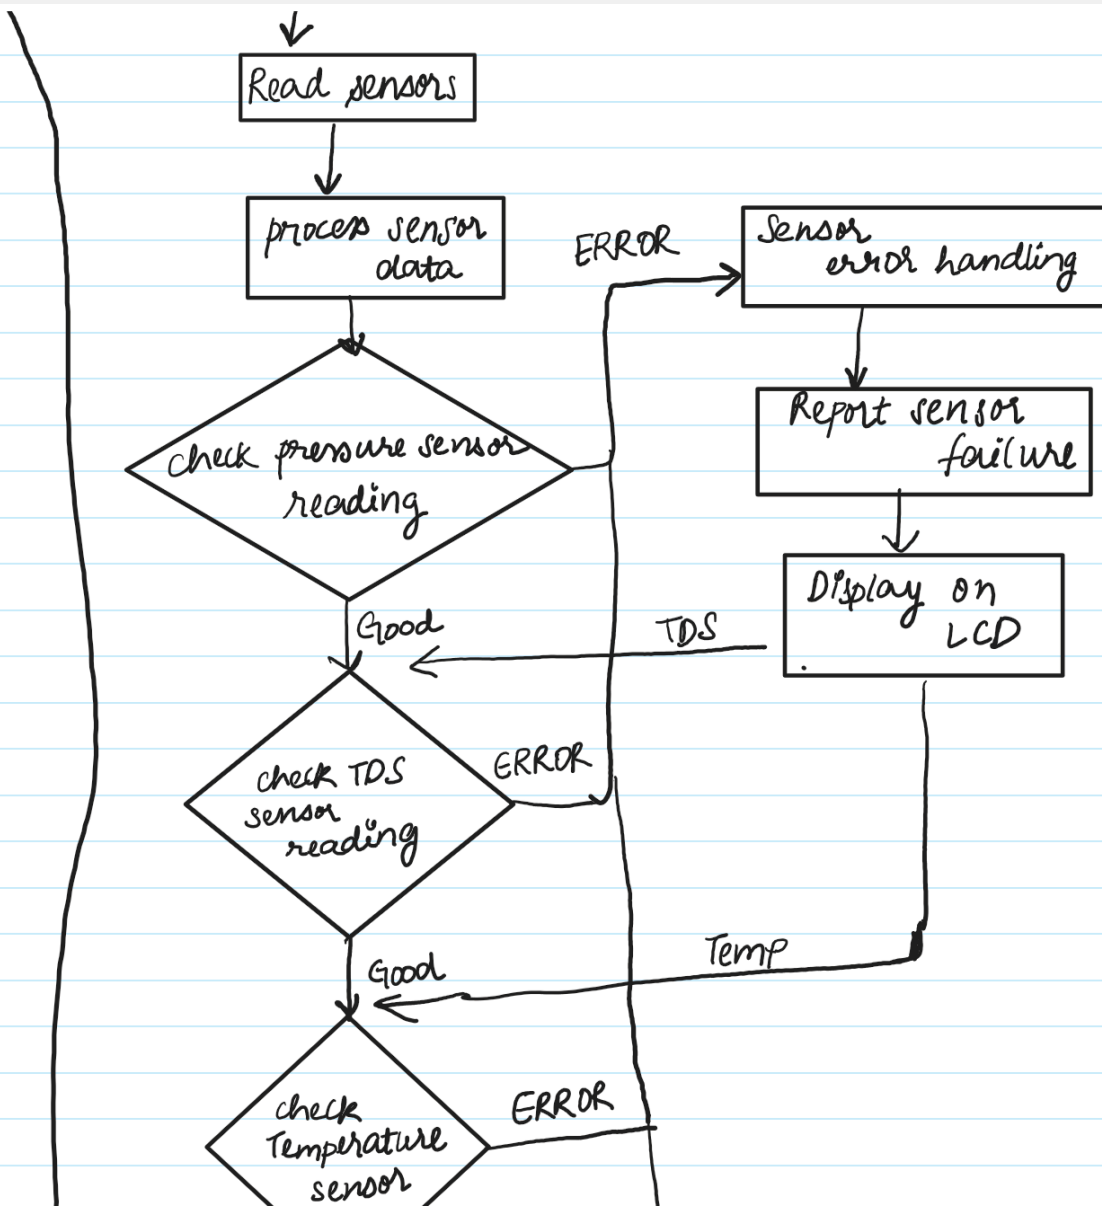 Read sensors
process sensor
data
ERROR
Sensor
error handling
Report sensor
failure
check pressure sensor
reading
Display on
LCD
Good
TDS
check TDS
sensor
reading
ERROR
Good
Temp
check
Temperature
sensor
ERROR